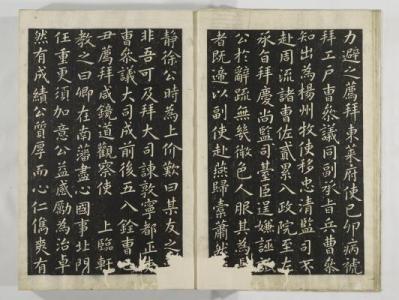 力避之薦拜東萊府使己卯病號
拜工戶曹參議同副承旨兵曹參
知出為楊州牧使移忠清監司不
赴周流諸曹佐貳累入政院至左
承旨拜慶尚監司臺臣逞嫌誣
公於辭疏無幾微色人服其為
者既遞以副使赴燕歸橐蕭然
靜徐公時為上价歎曰某友之
非吾可及拜大司諫敦寧都正
曹參議大司成前後五入銓曹
尹薦拜咸鏡道觀察使上臨軒
教之曰卿在南藩盡心國事北門
任重更須加意公益感勵為治卓
然有成績公質厚而心仁儁爽有